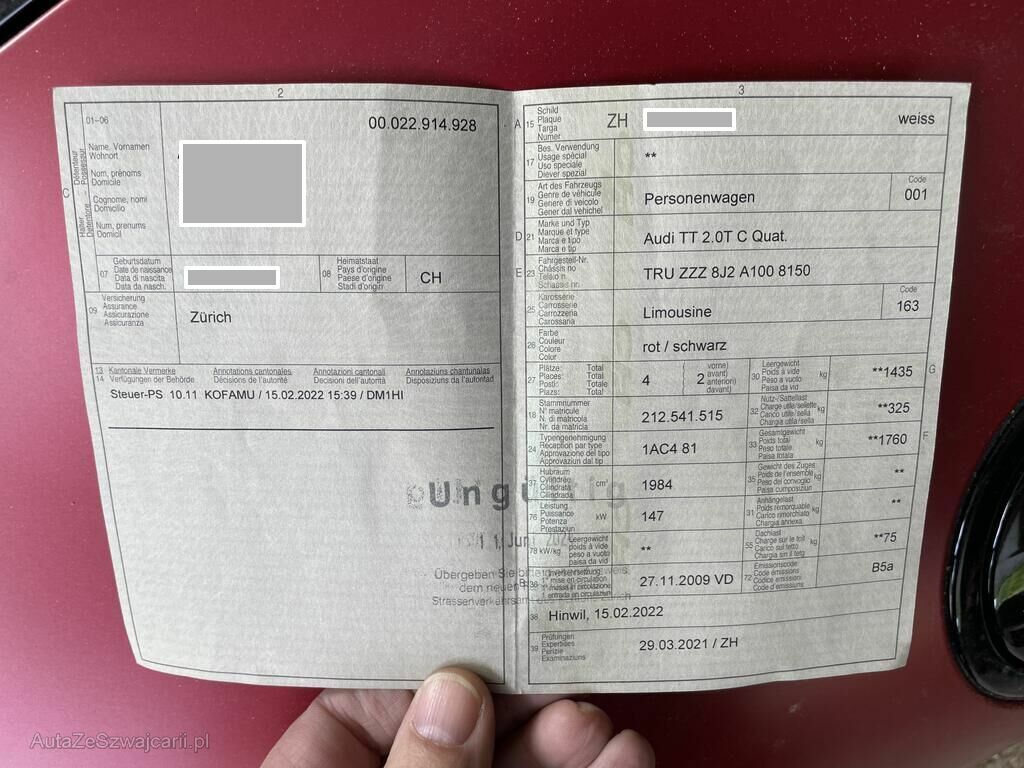 2
01–06
00.022.914.928
Détenteur Possesseur
Halter Detentore
C
Name, Vornamen
Wohnort
Nom, prénoms
Domicile
Cognome, nomi
Domicilio
Num, prenums
Domicil
07
Geburtsdatum
Date de naissance
Data di nascita
Data da nasch.
08
Heimatstaat
Pays d'origine
Paese d'origine
Stadi d'origin
CH
09
Versicherung
Assurance
Assicurazione
Assicuranza
Zürich
13 Kantonale Vermerke Annotations cantonales Annotazioni cantonali Annotaziuns chantunalas
14 Verfügungen der Behörde Décisions de l'autorité Decisioni dell'autorità Disposiziuns da l'autoritad
Steuer-PS 10.11 KOFAMU / 15.02.2022 15:39 / DM1HI
Ungültig
11. Juni
Übergeben Sie bitte
dem neuen
Strassenverkehrsamt des Kantons Zürich
3
A 15
Schild
Plaque
Targa
Numer
ZH
weiss
17
Bes. Verwendung
Usage spécial
Uso speciale
Diever spezial
**
19
Art des Fahrzeugs
Genre de véhicule
Genere di veicolo
Gener dal vehichel
Personenwagen
Code
001
D 21
Marke und Typ
Marque et type
Marca e tipo
Marca e tip
Audi TT 2.0T C Quat.
E 23
Fahrgestell-Nr.
Châssis no
Telaio n.
Schassis nr.
TRU ZZZ 8J2 A100 8150
25
Karosserie
Carrosserie
Carrozzeria
Carossaria
Limousine
Code
163
26
Farbe
Couleur
Colore
Color
rot / schwarz
27
Plätze: Total
Places: Total
Posti: Totale
Plazs: Total
4
2
vorne)
avant)
anteriori)
davant)
30
Leergewicht
Poids à vide
Peso a vuoto
Paisa da vid
kg
**1435
G
18
Stammnummer
N° matricule
N. di matricola
Nr. da matricla
212.541.515
32
Nutz-/Sattellast
Charge utile/sellette
Carico utile/sella
Chargia utila/sella
kg
**325
24
Typengenehmigung
Réception par type
Approvazione del tipo
Approvaziun dal tip
1AC4 81
33
Gesamtgewicht
Poids total
Peso totale
Paisa totala
kg
**1760
F
37
Hubraum
Cylindrée
Cilindrata
Cilindrada
cm³
1984
35
Gewicht des Zuges
Poids de l'ensemble
Peso del convoglio
Paisa cumposiziun
kg
**
76
Leistung
Puissance
Potenza
Prestaziun
kW
147
31
Anhängelast
Poids remorquable
Carico rimorchiato
Chargia annexa
kg
**
78 kW/kg
Leergewicht
poids à vide
peso a vuoto
paisa da vid
**
55
Dachlast
Charge sur le toit
Carico sul tetto
Chargia sin il tetg
kg
**75
B 36
1. Inverkehrsetzung
1re mise en circulation
1a messa in circolazione
1. entrada en circulaziun
27.11.2009 VD
72
Emissionscode
Code émissions
Codice emissioni
Code d'emissiuns
B5a
38 Hinwil, 15.02.2022
39
Prüfungen
Expertises
Perizie
Examinaziuns
29.03.2021 / ZH
AutaZeSzwajcarii.pl